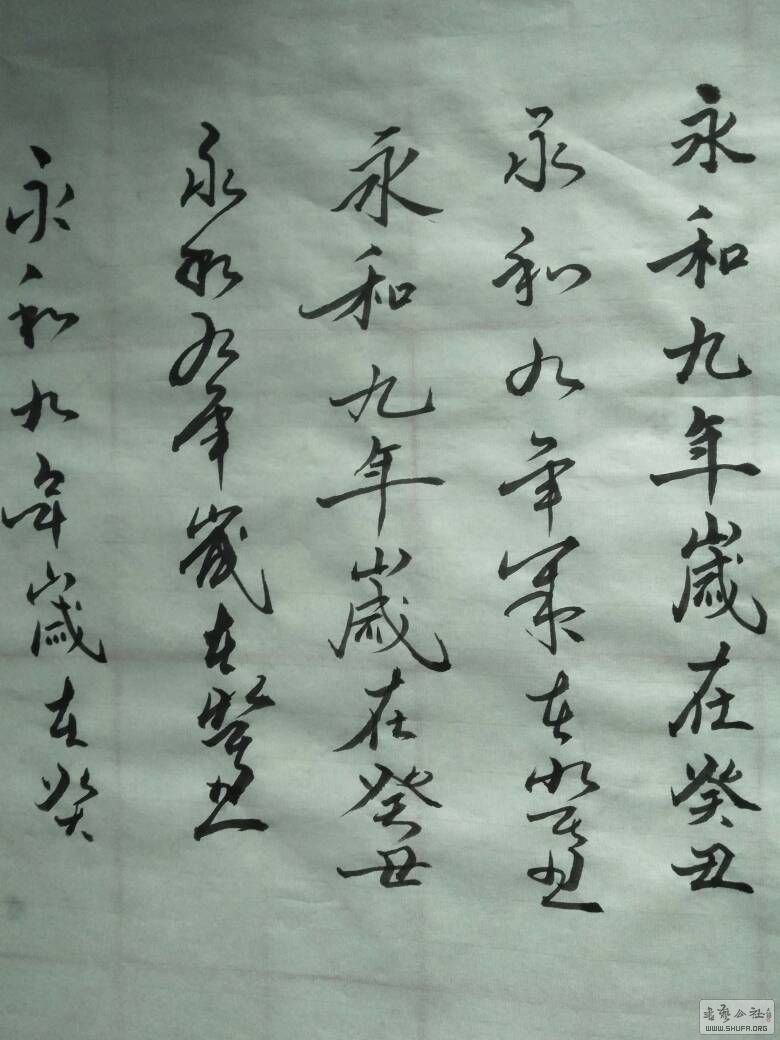 永和九年歲在癸丑
永和九年歲在癸丑
永和九年歲在癸丑
永和九年歲在癸丑
永和九年歲在癸
书艺公社
WWW.SHUFA.ORG